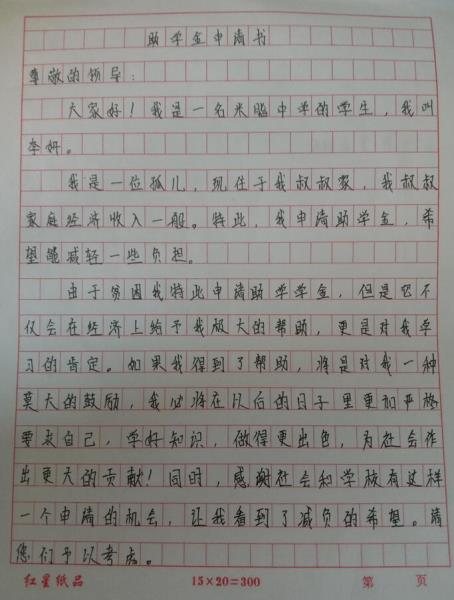 助学金申请书
尊敬的领导：
大家好！我是一名米脂中学的学生，我叫
李妍。
我是一位孤儿，现住于我叔叔家，我叔叔
家庭经济收入一般。特此，我申请助学金，希
望能减轻一些负担。
由于贫困我特此申请助学学金，但是它不
仅会在经济上给予我极大的帮助，更是对我学
习的肯定。如果我得到了帮助，将是对我一种
莫大的鼓励，我必将在以后的日子里更加严格
要求自己，学好知识，做得更出色，为社会作
出更大的贡献！同时，感谢社会和学校有这样
一个申请的机会，让我看到了减负的希望。请
您们予以考虑。
红星纸品 15×20=300 第 页